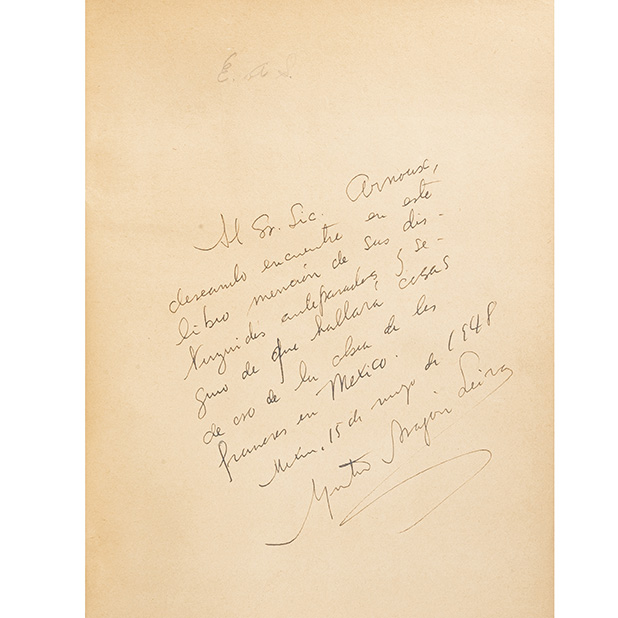 E. A. S.
Al Sr. Lic. Arnoux,
deseando encuentre en este
libro mención de sus dis-
tinguidos antepasados y se-
guro de que hallará cosas
de eso de la obra de los
franceses en México.
Méxi, 15 de mayo de 1948